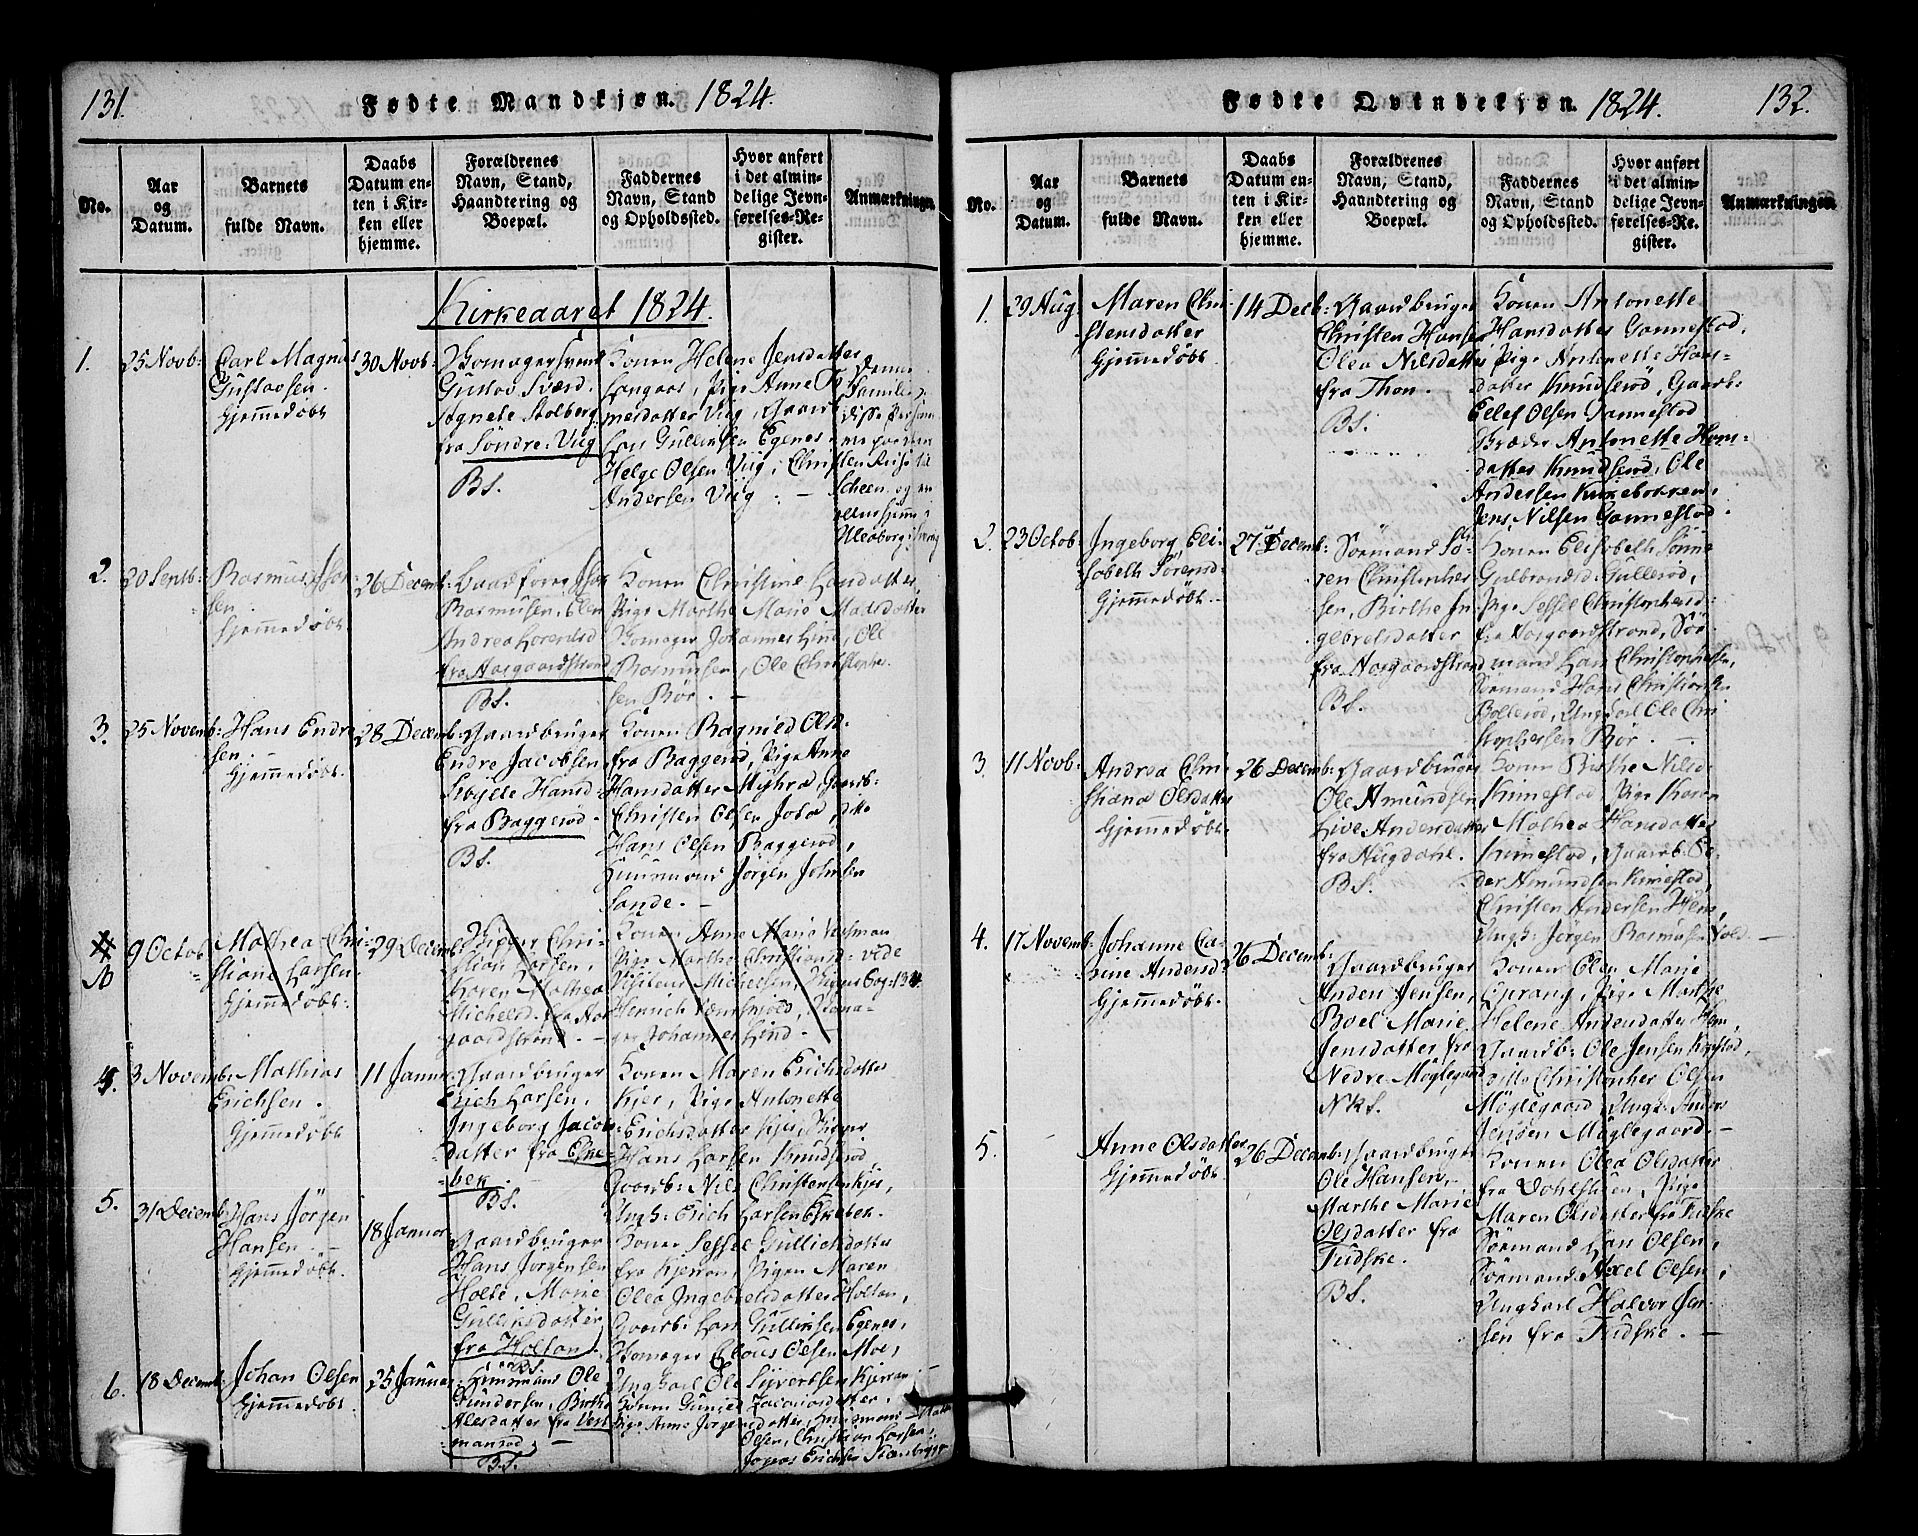 131.
Fødte Mandkjøn. 1824.
No.
Aar
og
Datum.
Barnets
fulde Navn.
Daabs
Datum en-
ten i Kir-
ken eller
hjemme.
Forældrenes
Navn, Stand,
Haandtering og
Boepæl.
Faddernes
Navn, Stand
og Opholdssted.
Hvor anført
i det almin-
delige Jevn-
førelses-Re-
gister.
Anmærkninger.
Kirkeaaret 1824.
1.
25 Novb:
Carl Magnus
Gustavsen.
Hjemmedøbt
30 Novb:
Gustov Sværd.
Agnete Stolberg
fra Søndre: Viig
BS.
Konen Helene Jensdatter
Langaas, Pige Anne To
mesdatter Viig, Gaard
Lars Gulliksen Egenes
Helge Olsen Viig, Christen
Andersen Viig. —
Denne
Familie,
disse Person
Scheen og
2.
20 Septb:
Rasmus Isac
sen.
Hjemmedøbt
26 Decemb:
Rasmusen, Elen
Andrea Lorentsd
fra Aasgaardstrand
BS.
Konen Christine Larsdatter
Pige Marthe Marie Madsdatter
Johannes Lind, Ole
Rasmusen, Ole Christophe-
sen Bør. —
3.
25 Novemb:
Hans Endre
sen. —
Hjemmedøbt.
28 Decemb:
Gaardbruger
Endre Jacobsen
Hansd:
fra Baggerød.
BS.
Konen Ragnild Olsd.
fra Baggerød, Pige Anne
Hansdatter Myhra, Gaardb:
Christen Olsen, ditto
Hans Olsen Baggerød,
Jørgen Johnsen
Sande. —
9 Octob
Mathea Chri-
stiane Larsen
Hjemmedøbt.
29 Decemb:
Skipper Chri-
stian Larsen,
Maren Mathea
Michelsd. fra Aas
gaardstrand. —
Konen Anne Marie
Pige Marthe Christiansd: vide
Michelsen, Pag: 134
Henrich
Johannes Lind. —
4.
3 Novemb:
Mathias
Erichsen.
Hjemmedøbt
11 Januar
Gaardbruger
Erich Larsen,
Ingeborg Jacobs-
datter fra Eske-
bek.
BS.
Konen Maren Erichsdatter
Kjær, Pige Antonette
Erichsdatter Kjær,
Hans Larsen Knudserød
Gaardb: Nils Christensen Kjær,
Ungk: Erich Larsen Eskebek.
5.
31 Decemb:
Hans Jørgen
Hansen. —
Hjemmedøbt.
18 Januar
Gaardbruger
Hans Jørgensen
Holte, Marie
Gulliksdatter
fra Holtan.
BS.
Konen Sessel Gulliksdatter
fra Kjerran, Pigen Maren
Olea Ingebretsdatter Holtan,
Gaardb: Lars Gulliksen Egenes,
Claus Olsen Moe,
Ungkarl Ole Syvertsen Kjerran
6.
18 Decemb:
Johan Olsen
Hjemmedøbt.
25 Januar
Huusmand Ole
Gundersen, Birthe
fra Vest-
manrød
BS.
Konen Gunild Zacariadatter,
Pige Anne Jørgensdatter, Huusmand
Olsen, Christian Larsen
132.
Fødte Qvindekjøn. 1824.
No.
Aar
og
Datum.
Barnets
fulde Navn.
Daabs
Datum en-
ten i Kir-
ken eller
hjemme.
Forældrenes
Navn, Stand,
Haandtering og
Boepæl.
Faddernes
Navn, Stand
og Opholdssted.
Hvor anført
i det almin-
delige Jevn-
førelses-Re-
gister.
Anmærkninger.
1.
29 Aug:
Maren Chri
stensdatter
Hjemmedøbt
14 Decb:
Gaardbruger
Christen Hansen
Olea Nilsdatter
fra Thon.
BS.
Konen Antonette
Hansdatter Gannestad,
Pige Antonette Hans-
datter Knudserød, Gaardb:
Ellef Olsen Gannestad
Antonette Hans-
datter Knudserød, Ole
Andersen Kirkebakken,
Jens Nilsen Gannestad.
2.
23 Octob:
Ingeborg Eli-
sabeth Sørensd:
Hjemmedøbt. —
27 Decemb:
Sørmand Sø-
ren Christopher
sen, Birthe In
gebretsdatter
fra Aasgaardstrand
BS.
Konen Elisabeth
Gulbrandsd: Gullerød,
Pige Sessel Christophersd:
fra Aasgaardstrand, Sør
mand Lars Christophersen,
Sørmand Hans Christians
Bollerød, Ungkarl Ole Chri
stophersen Bør. —
3.
11 Novb:
Andrea Chri
stiana Olsdatter
Hjemmedøbt.
26 Decemb:
Gaardbruger
Ole Amundsen
Live Andersdatter
fra Augdahl.
BS.
Konen Birthe Nilsd:
Kimestad, Pige Karen
Mathea Hansdatter
Kimestad, Gaardb: Pe-
der Amundsen Kimestad,
Christen Andersen Hem,
Ungk: Jørgen Rasmusen Vold. —
4.
17 Novemb:
Johanne Ca-
trine Andersd
Hjemmedøbt.
26 Decemb:
Gaardbruger
Anders Jensen,
Boel Marie
Jensdatter fra
Nedre Møglegaard
NkS.
Konen Olea Marie
Eprang, Pige Marthe
Helene Andersdatter Hem,
Gaardb: Ole Jensen
ditto Christopher Olsen
Møglegaard, Ungk: Anders
Jensen Møglegaard. —
5.
—
Anne Olsdatter
Hjemmedøbt
26 Decemb:
Gaardbruger
Ole Hansen,
Marthe Marie
Olsdatter fra
Tudske.
BS.
Konen Olea Olsdatter
fra Dohlskuen, Pige
Maren Olsdatter fra Tudske
Sørmand Lars Olsen,
Sørmand Axel Olsen,
Ungkarl Halvor Jen-
sen fra Tudske. —